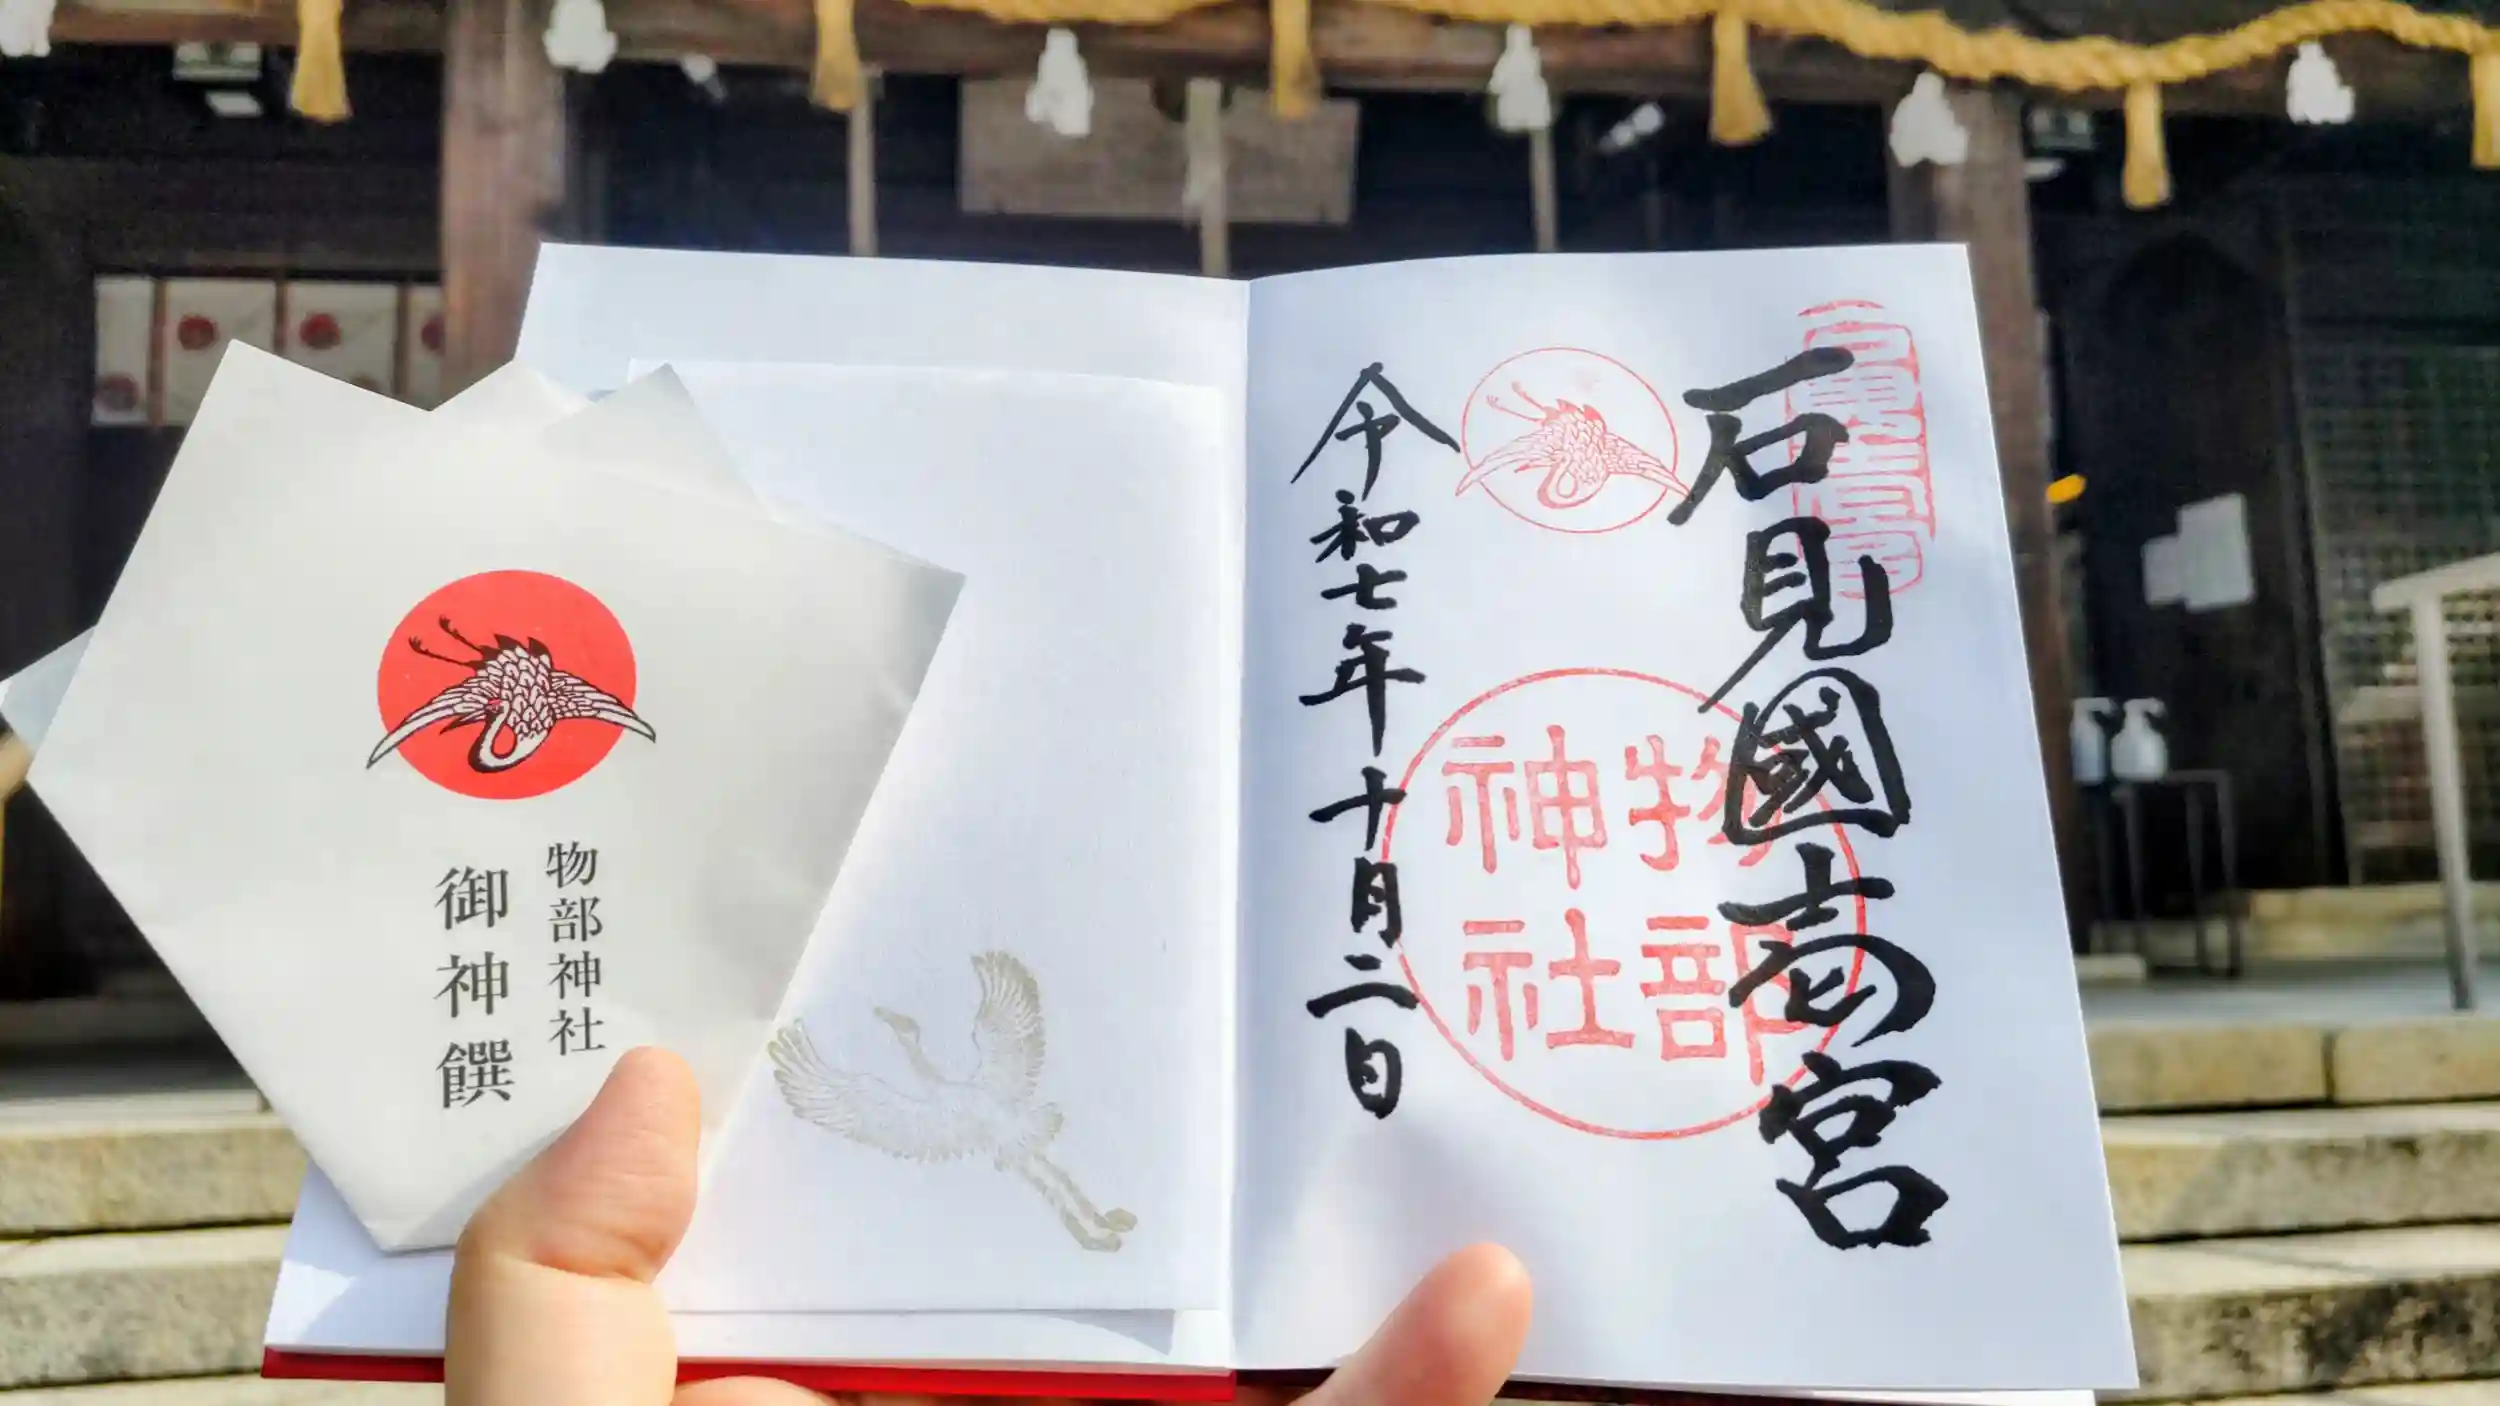 石見國壱宮
物部
神社
令和七年十月二日
物部神社
御神饌